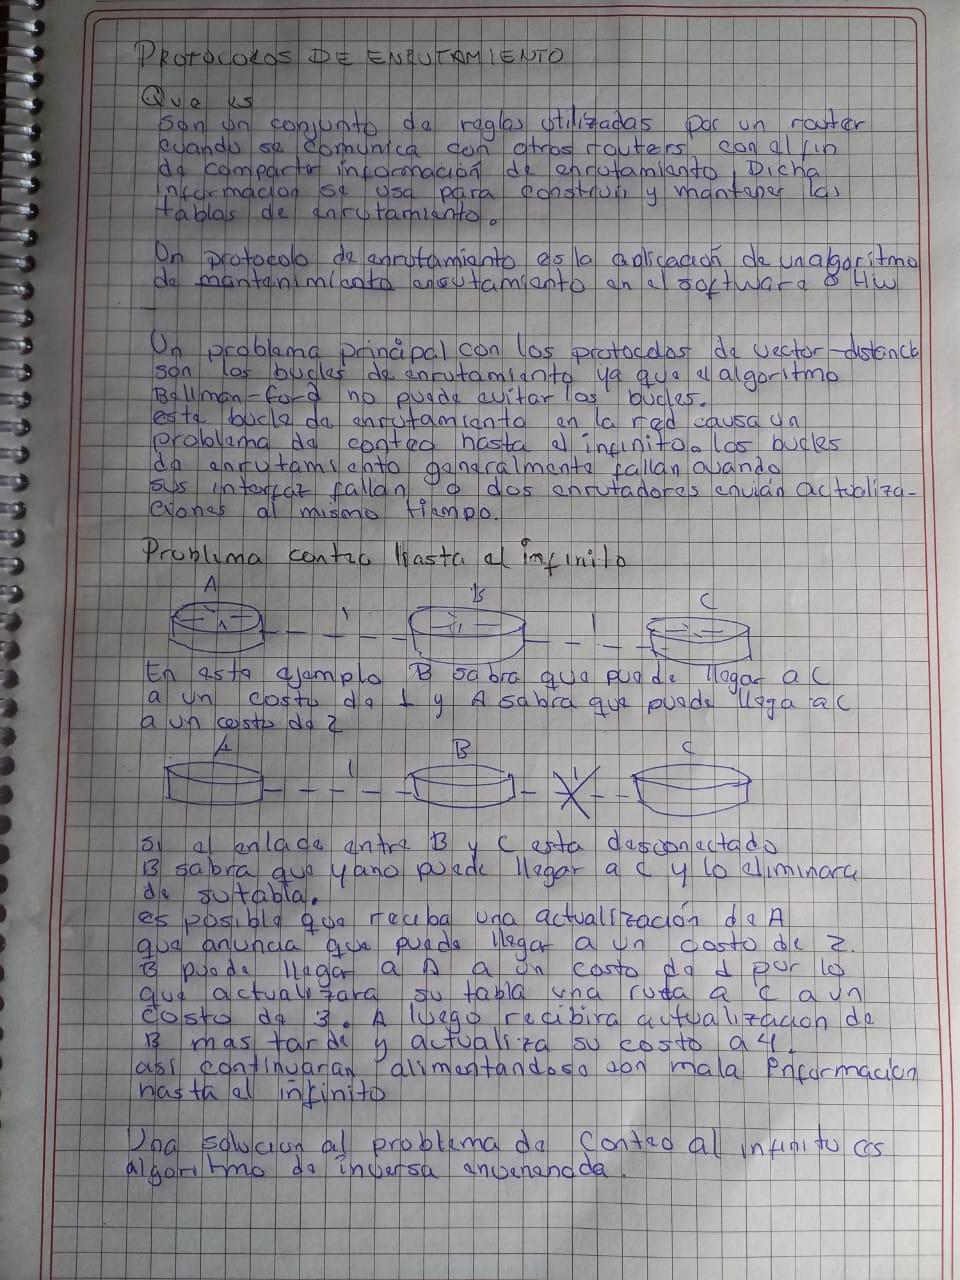 PROTOCOLOS DE ENRUTAMIENTO
Que es
son un conjunto de reglas utilizadas por un router
cuando se comunica con otros routers con el fin
de compartir información de enrutamiento, Dicha
informacion se usa para construir y mantener las
tablas de enrutamiento.
Un protocolo de enrutamiento es la aplicación de un algoritmo
de mantenimiento enrutamiento en el software o HW
Un problema principal con los protocolos de vector-distanci
son los bucles de enrutamiento ya que el algoritmo
Bellman-ford no puede evitar los bucles.
este bucle de enrutamiento en la red causa un
problema de conteo hasta el infinito. los bucles
de enrutamiento generalmente fallan cuando
sus interfaz fallan o dos enrutadores envián actualiza-
ciones al mismo tiempo.
Problema conteo Hasta el infinito
A B C
1 1
En este ejemplo B sabra que puede llegar a C
a un costo de 1 y A sabra que puede llega a C
a un costo de 2
A B C
1 1
Si el enlace entre B y C esta desconectado
B sabra que ya no puede llegar a C y lo eliminara
de su tabla.
es posible que reciba una actualización de A
que anuncia que puede llegar a un costo de 2.
B puede llegar a A a un costo de 1 por lo
que actualizara su tabla una ruta a C a un
costo de 3. A luego recibira actualizacion de
B mas tarde y actualiza su costo a 4.
asi continuaran alimentandose con mala informacion
hasta el infinito
Una solucion al problema de Conteo al infinito es
algoritmo de inversa envenenada.